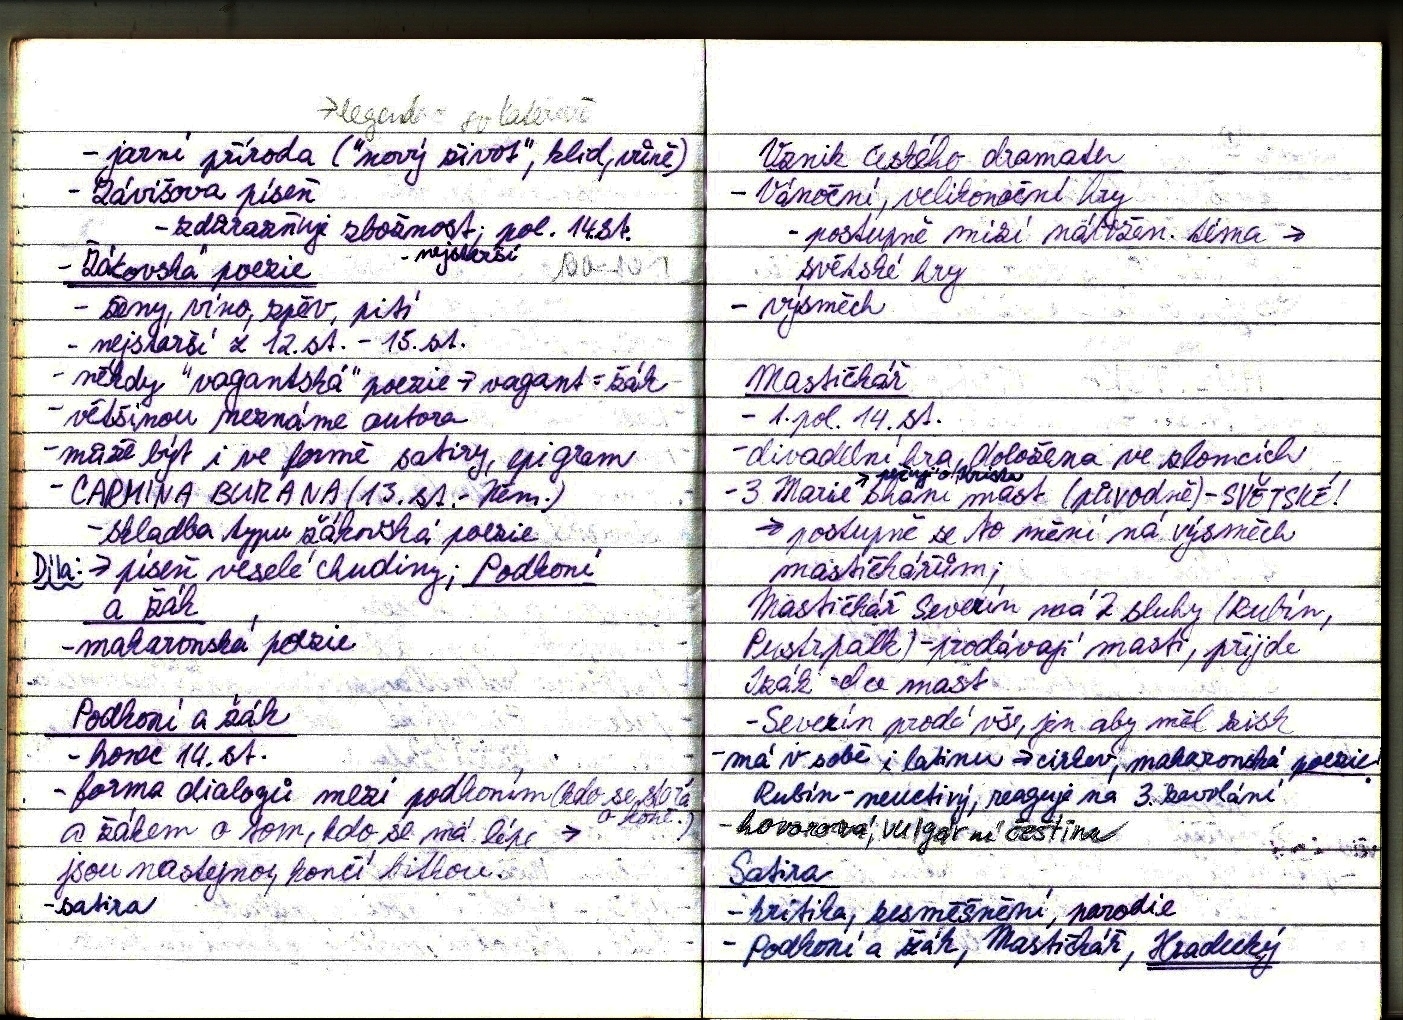 → legenda o sv Kateřině
- jarní příroda ("nový život", klid, vůně)
- Závišova píseň
- zdůrazňuje zbožnost; pol. 14.st.
- nejstarší
- Žákovská" poezie
- ženy, víno, zpěv, pití
- nejstarší z 12.st. - 15.st.
- někdy "vagantská" poezie → vagant = žák
- většinou neznáme autora
- může být i ve formě satiry, epigram
- CARMINA BURANA (13.st. - Něm.)
- skladba typu žákovská poezie
Díla: → píseň veselé chudiny; Podkoní
a žák
- makaronská poezie
Podkoní a žák
- konec 14.st.
- forma dialogů mezi podkoním (kdo se stará
o koně.)
a žákem o tom, kdo se má lépe →
jsou nastejno, končí bitkou.
- satira
Vznik českého dramatu
- Vánoční, velikonoční hry
- postupně mizí nábožen. téma →
světské hry
- výsměch
Mastičkář
- 1. pol. 14.st.
- divadelní hra, doložena ve zlomcích
→ pečují o Krista
- 3 Marie shání mast (původně) - SVĚTSKÉ!
→ postupně se to mění na výsměch
mastičkářům;
Mastičkář Severín má 2 sluhy (Rubín,
Pustrpalk) - prodávají masti, přijde
Izák - chce mast
- Severín prodá vše, jen aby měl zisk
- má v sobě i latinu → církev, makaronská poezie!
Rubín - neuctivý, reaguje na 3. zavolání
- hovorová, vulgární čeština
Satira
- kritika, zesměšnění, parodie
- Podkoní a žák, Mastičkář, Hradecký